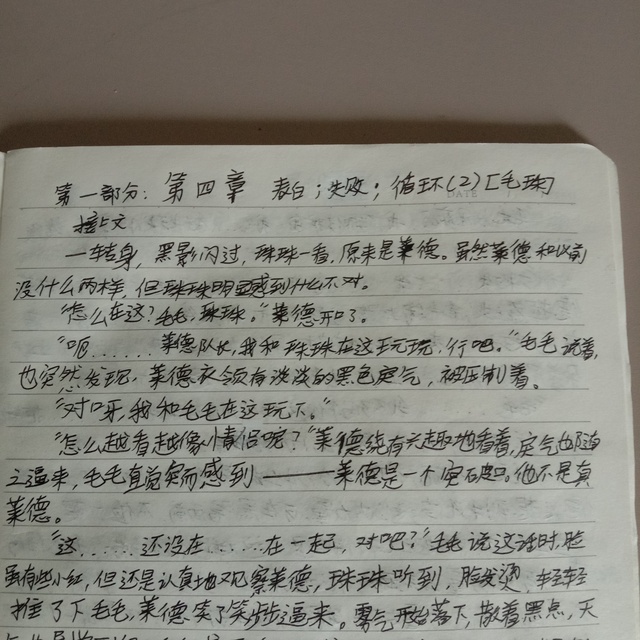 第一部分：第四章 表白；失败；循环(2)[毛珠]
接上文
一转身，黑影闪过，珠珠一看，原来是莱德。虽然莱德和以前
没什么两样，但珠珠明显感到什么不对。
“怎么在这？毛毛，珠珠。”莱德开口了。
“呃……莱德队长，我和珠珠在这玩玩，行吧。”毛毛说着，
也突然发现，莱德衣领有淡淡的黑色突气，被压制着。
“对呀，我和毛毛在这玩下。”
“怎么越看越像小情侣呢？”莱德饶有兴趣地看着，突气也随
之逼来，毛毛直觉突而感到——莱德是一个突破口。他不是真
莱德。
“这……还没在……在一起，对吧？”毛毛说这话时，脸
虽有些小红，但还是认真地观察莱德，珠珠听到，脸发烫，轻轻
推了下毛毛，莱德笑了笑步步逼来。雾气开始落下，散着黑点，天